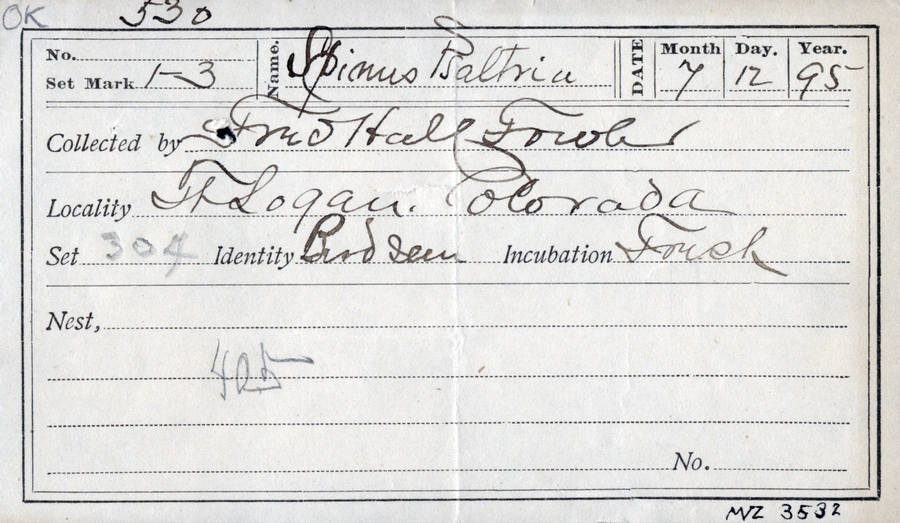 OK 530
No.
Set Mark 1-3
Name. Spinus Psaltria
DATE Month 7 Day. 12 Year. 95
Collected by Fred Hall Fowler
Locality Ft Logan. Colorado
Set 304 Identity Bird seen Incubation Fresh
Nest,
405
No.
MVZ 3532